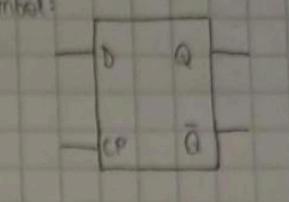 mbol:
D Q
CP Q̅